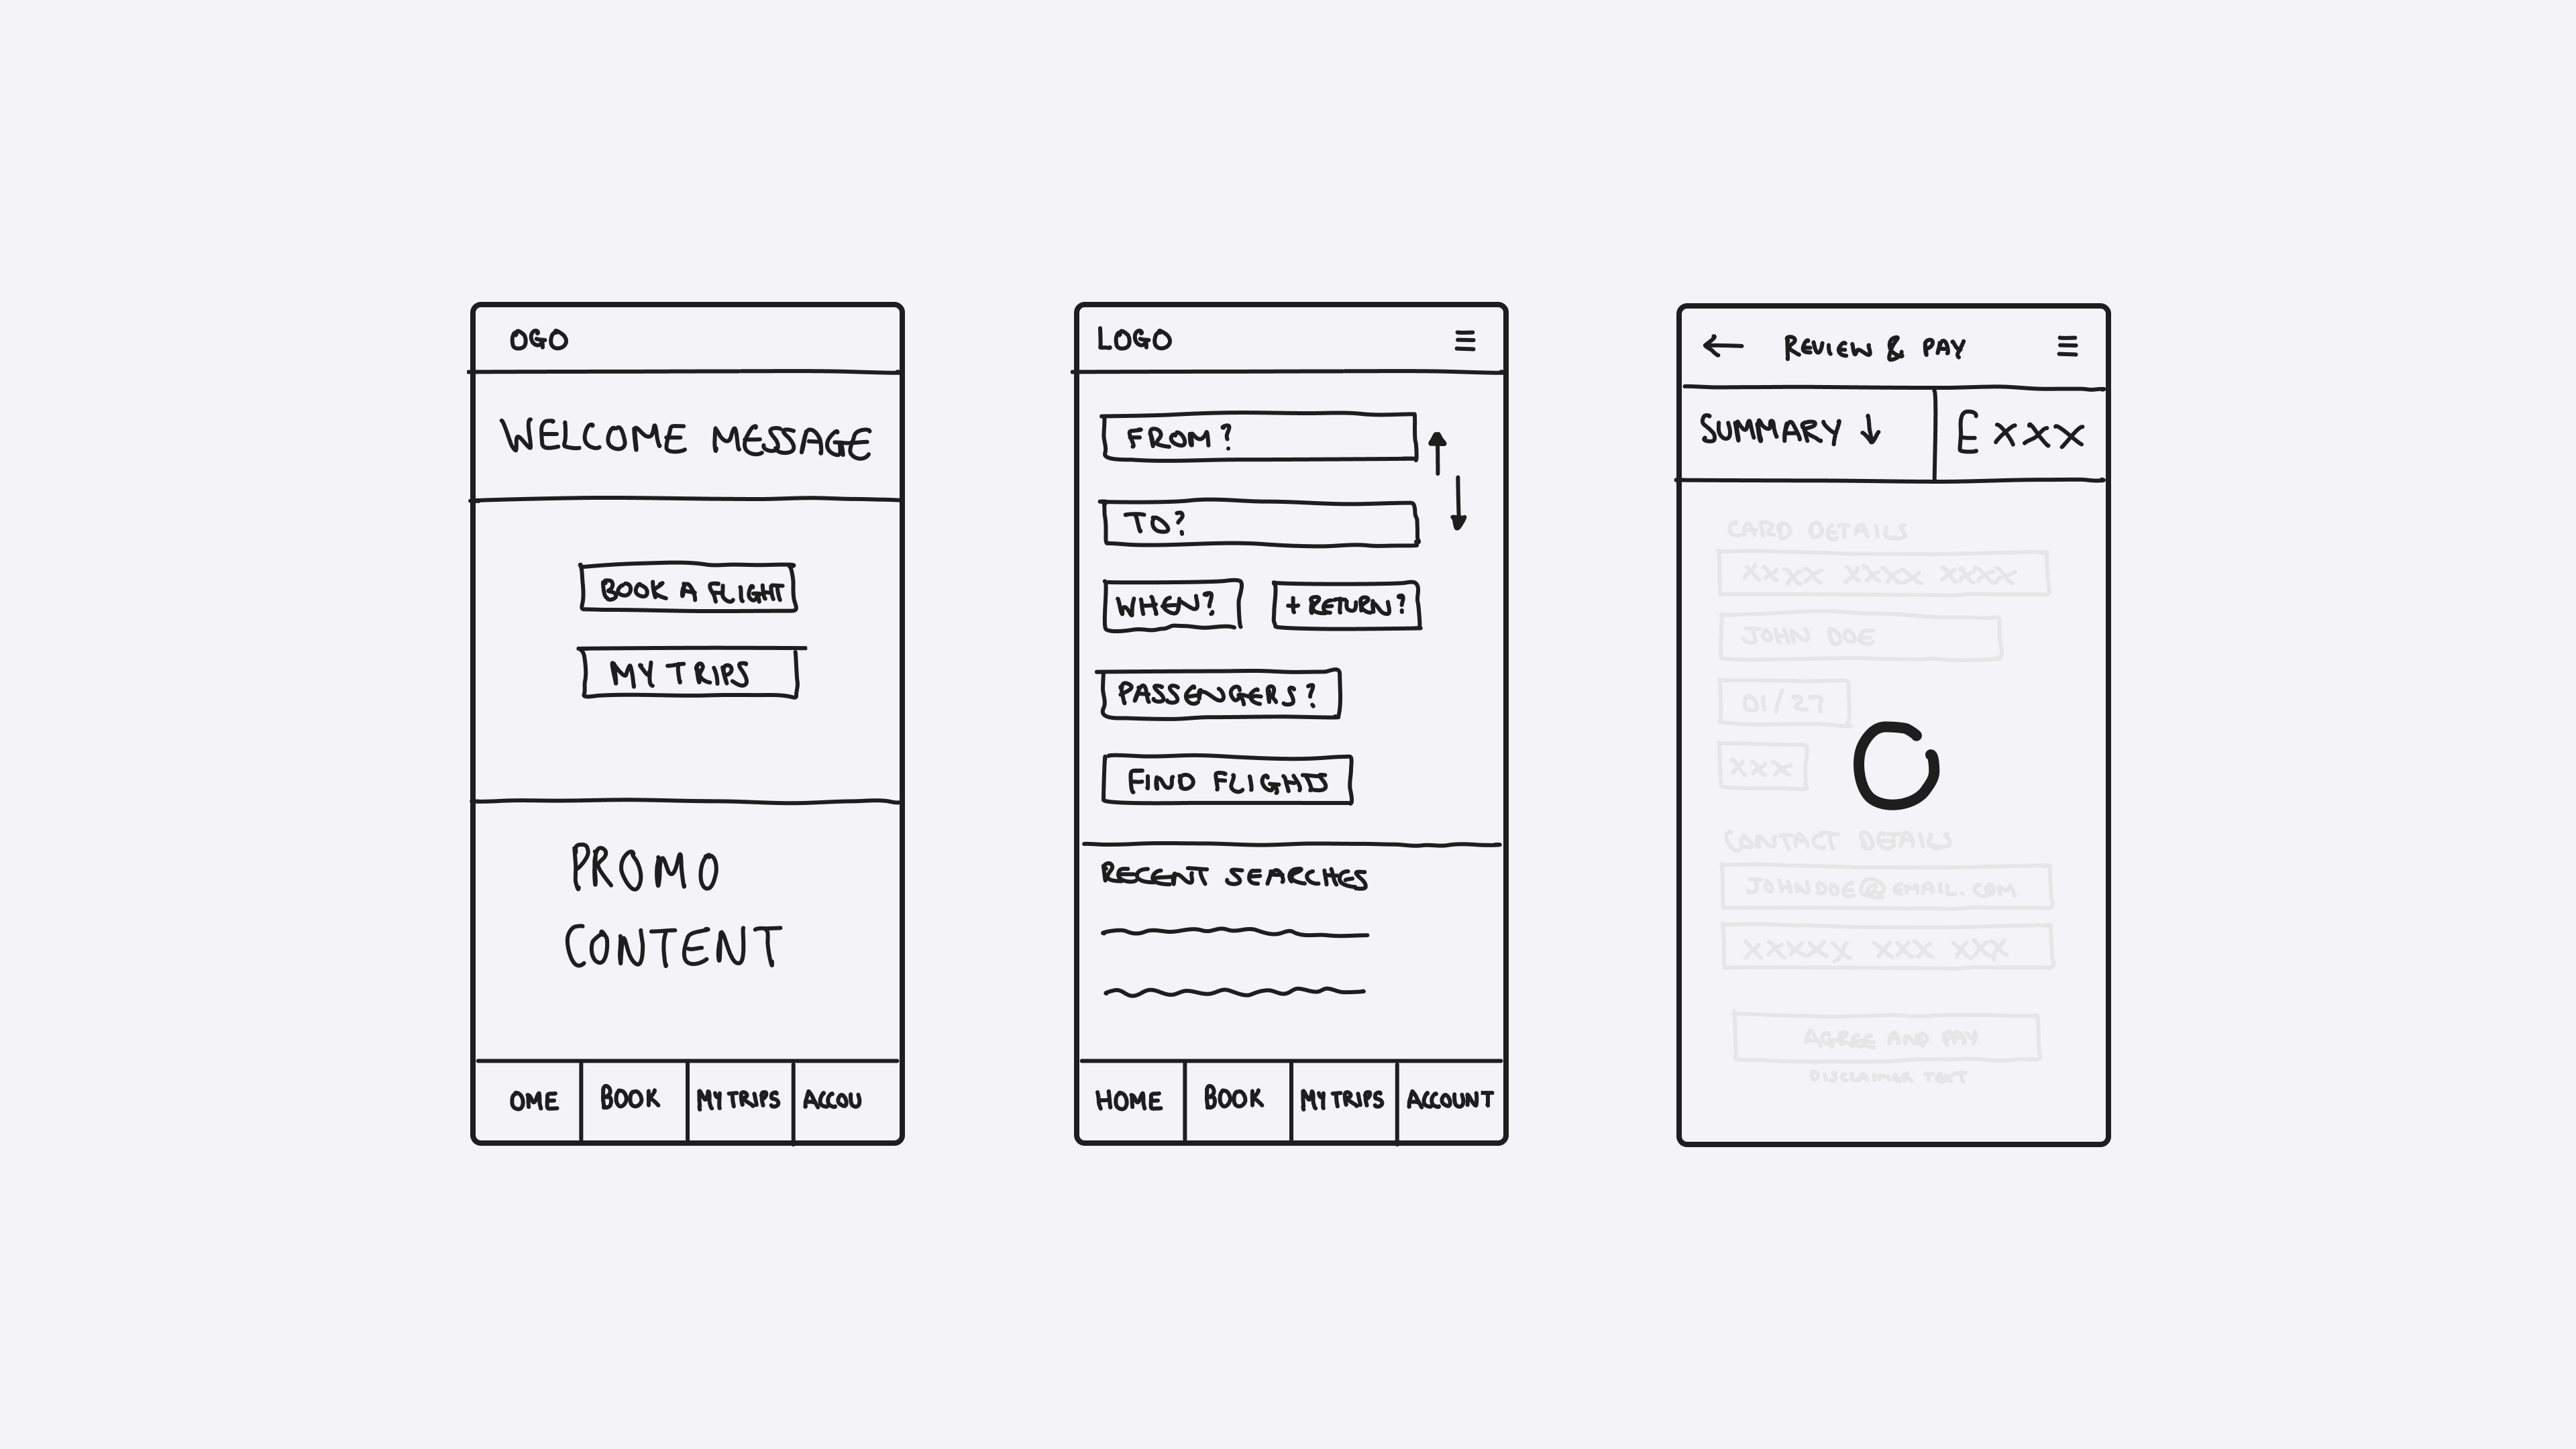 OGO
WELCOME MESSAGE
BOOK A FLIGHT
MY TRIPS
PROMO
CONTENT
OME BOOK MY TRIPS ACCOU
LOGO
FROM?
TO?
WHEN? + RETURN?
PASSENGERS?
FIND FLIGHTS
RECENT SEARCHES
HOME BOOK MY TRIPS ACCOUNT
REVIEW & PAY
SUMMARY ↓ £ XXX
CARD DETAILS
XXXX XXXX XXXX
JOHN DOE
01/27
XXX
CONTACT DETAILS
JOHNDOE@EMAIL.COM
XXXXX XXX XXX
AGREE AND PAY
DISCLAIMER TEXT